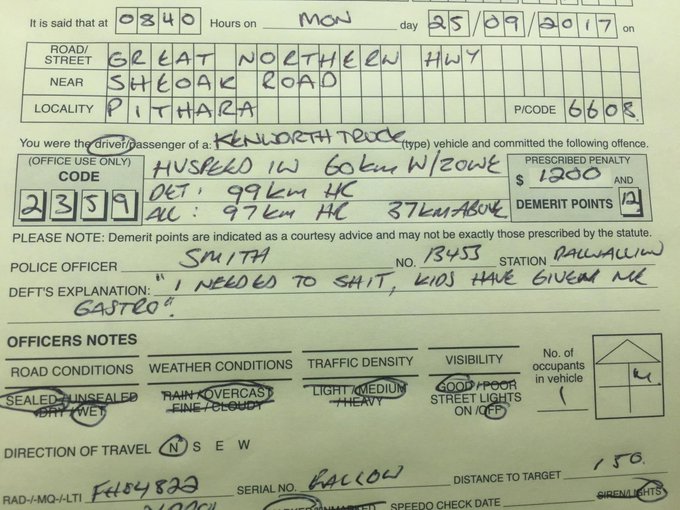 It is said that at 0840 Hours on MON day 25/09/2017 on
ROAD/STREET GREAT NORTHERN HWY
NEAR SHEOAK ROAD
LOCALITY PITHARA P/CODE 6608
You were the driver/passenger of a: KENWORTH TRUCK (type) vehicle and committed the following offence.
(OFFICE USE ONLY) CODE 2359
HVSPEED IN 60km W/ZONE
DET: 99km HR
ALL: 97km HR 37km ABOVE
PRESCRIBED PENALTY
$ 1200 AND
DEMERIT POINTS 12
PLEASE NOTE: Demerit points are indicated as a courtesy advice and may not be exactly those prescribed by the statute.
POLICE OFFICER SMITH NO. 13453 STATION DALWALLINU
DEFT'S EXPLANATION: "I NEEDED TO SHIT, KIDS HAVE GIVEN ME
GASTRO".
OFFICERS NOTES
ROAD CONDITIONS WEATHER CONDITIONS TRAFFIC DENSITY VISIBILITY No. of occupants in vehicle
SEALED/UNSEALED RAIN/OVERCAST LIGHT/MEDIUM GOOD/POOR
DRY/WET FINE/CLOUDY /HEAVY STREET LIGHTS 1
ON/OFF
DIRECTION OF TRAVEL N S E W
RAD-/-MQ-/-LTI SERIAL NO. DISTANCE TO TARGET 150.
SPEEDO CHECK DATE SIREN/LIGHTS